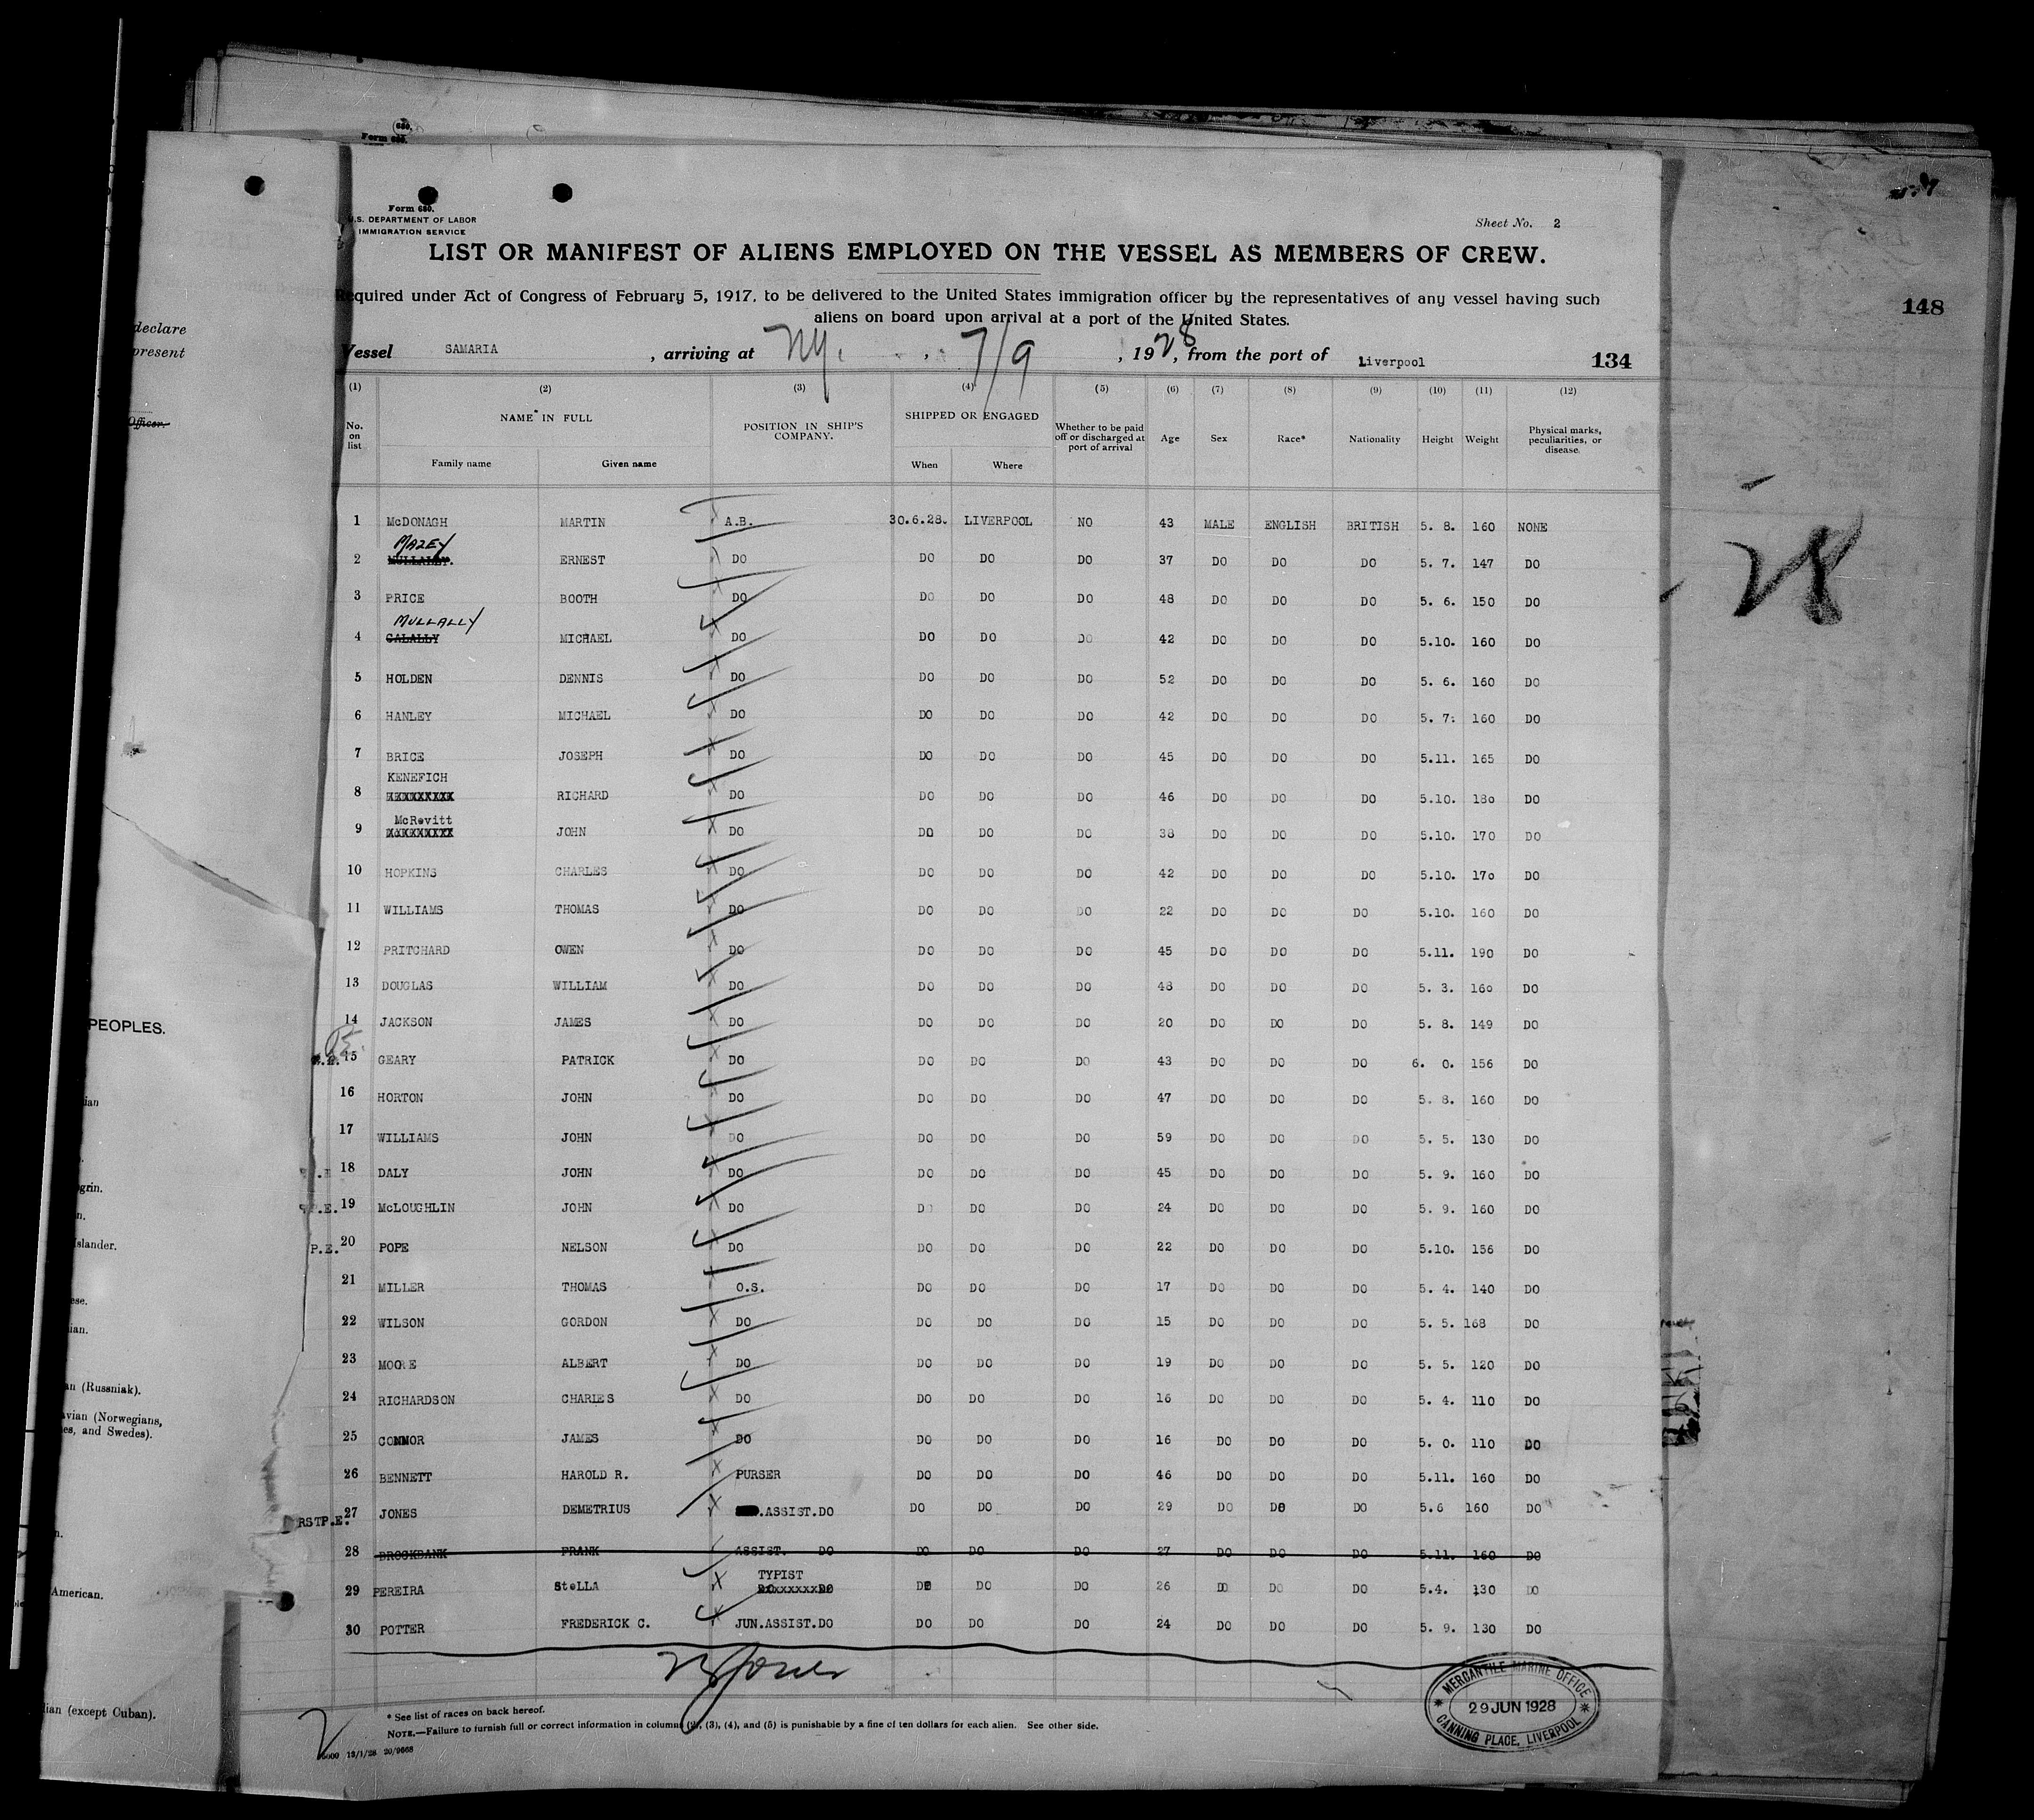 Form 680.
148
Form 680.
U.S. DEPARTMENT OF LABOR
IMMIGRATION SERVICE
Sheet No. 2
LIST OR MANIFEST OF ALIENS EMPLOYED ON THE VESSEL AS MEMBERS OF CREW.
Required under Act of Congress of February 5, 1917, to be delivered to the United States immigration officer by the representatives of any vessel having such
aliens on board upon arrival at a port of the United States.
Vessel SAMARIA , arriving at N.Y. , 7/9 , 1928, from the port of Liverpool 134
(1) (2) (3) (4) (5) (6) (7) (8) (9) (10) (11) (12)
No. on list NAME IN FULL Family name Given name POSITION IN SHIP'S COMPANY. SHIPPED OR ENGAGED When Where Whether to be paid off or discharged at port of arrival Age Sex Race* Nationality Height Weight Physical marks, peculiarities, or disease.
1 McDONAGH MARTIN A.B. 30.6.28. LIVERPOOL NO 43 MALE ENGLISH BRITISH 5. 8. 160 NONE
MAZEY
2 ERNEST DO DO DO DO 37 DO DO DO 5. 7. 147 DO
3 PRICE BOOTH DO DO DO DO 48 DO DO DO 5. 6. 150 DO
MULLALLY
4 GALALLY MICHAEL DO DO DO DO 42 DO DO DO 5.10. 160 DO
5 HOLDEN DENNIS DO DO DO DO 52 DO DO DO 5. 6. 160 DO
6 HANLEY MICHAEL DO DO DO DO 42 DO DO DO 5. 7. 160 DO
7 BRICE JOSEPH DO DO DO DO 45 DO DO DO 5.11. 165 DO
KENEFICH
8 RICHARD DO DO DO DO 46 DO DO DO 5.10. 180 DO
McRevitt
9 JOHN DO DO DO DO 38 DO DO DO 5.10. 170 DO
10 HOPKINS CHARLES DO DO DO DO 42 DO DO DO 5.10. 170 DO
11 WILLIAMS THOMAS DO DO DO DO 22 DO DO DO 5.10. 160 DO
12 PRITCHARD OWEN DO DO DO DO 45 DO DO DO 5.11. 190 DO
13 DOUGLAS WILLIAM DO DO DO DO 48 DO DO DO 5. 3. 160 DO
14 JACKSON JAMES DO DO DO DO 20 DO DO DO 5. 8. 149 DO
15 GEARY PATRICK DO DO DO DO 43 DO DO DO 6. 0. 156 DO
16 HORTON JOHN DO DO DO DO 47 DO DO DO 5. 8. 160 DO
17 WILLIAMS JOHN DO DO DO DO 59 DO DO DO 5. 5. 130 DO
18 DALY JOHN DO DO DO DO 45 DO DO DO 5. 9. 160 DO
P.E. 19 McLOUGHLIN JOHN DO DO DO DO 24 DO DO DO 5. 9. 160 DO
P.E. 20 POPE NELSON DO DO DO DO 22 DO DO DO 5.10. 156 DO
21 MILLER THOMAS O.S. DO DO DO 17 DO DO DO 5. 4. 140 DO
22 WILSON GORDON DO DO DO DO 15 DO DO DO 5. 5. 168 DO
23 MOORE ALBERT DO DO DO DO 19 DO DO DO 5. 5. 120 DO
24 RICHARDSON CHARLES DO DO DO DO 16 DO DO DO 5. 4. 110 DO
25 CONNOR JAMES DO DO DO DO 16 DO DO DO 5. 0. 110 DO
26 BENNETT HAROLD R. PURSER DO DO DO 46 DO DO DO 5.11. 160 DO
RSTP.E. 27 JONES DEMETRIUS .ASSIST.DO DO DO DO 29 DO DO DO 5.6 160 DO
28 BROCKBANK FRANK ASSIST. DO DO DO DO 27 DO DO DO 5.11. 160 DO
TYPIST
29 PEREIRA SteLLA DO DO DO 26 DO DO DO 5.4. 130 DO
30 POTTER FREDERICK C. JUN.ASSIST.DO DO DO DO 24 DO DO DO 5. 9. 130 DO
* See list of races on back hereof.
NOTE.—Failure to furnish full or correct information in columns (2), (3), (4), and (5) is punishable by a fine of ten dollars for each alien. See other side.
5000 13/1/28 20/9668
MERCANTILE MARINE OFFICE
29 JUN 1928
CANNING PLACE, LIVERPOOL
28
declare
present
Officer.
PEOPLES.
Islander.
(Russniak).
(Norwegians,
and Swedes).
American.
(except Cuban).